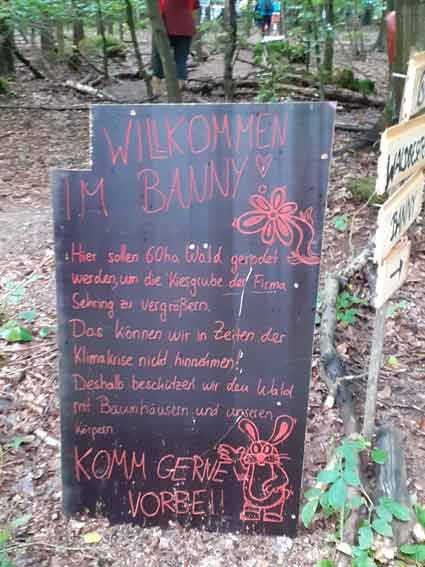 WILLKOMMEN
IM BANNY
Hier sollen 60ha Wald gerodet
werden, um die Kiesgrube der Firma
Sehring zu vergrößern.
Das können wir in Zeiten der
Klimakrise nicht hinnehmen!
Deshalb beschützen wir den Wald
mit Baumhäusern und unseren
Körpern
KOMM GERNE
VORBEI!
BANNY